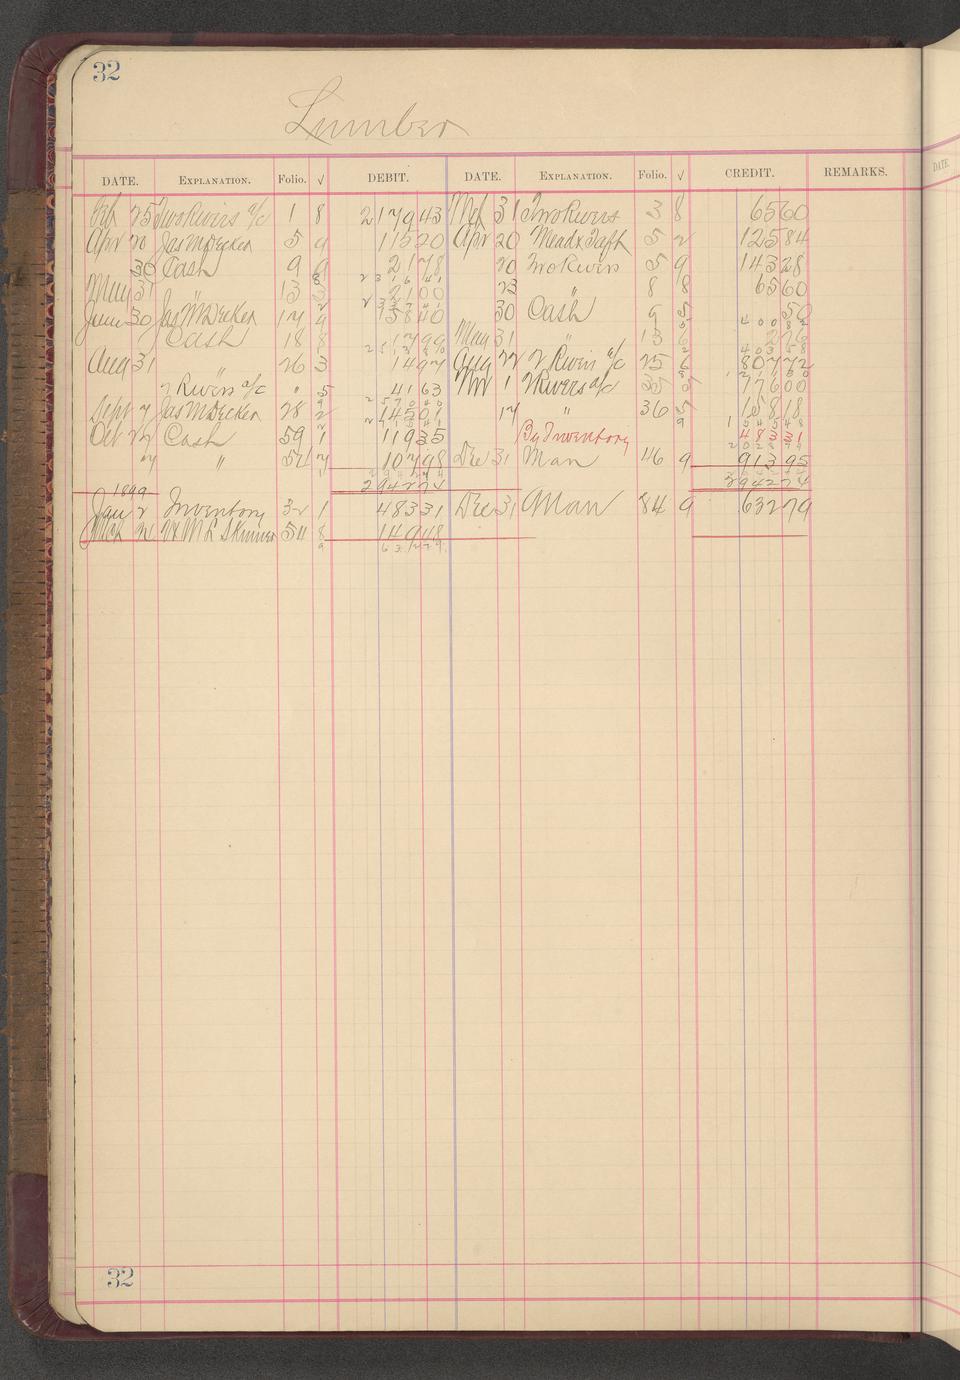 32
Lumber
DATE. EXPLANATION. Folio. √ DEBIT. DATE. EXPLANATION. Folio. √ CREDIT. REMARKS.
Feb 25 Two Rivers a/c 1 8 2179 43 Mch 31 Two Rivers 3 8 65 60
Apr 20 Jas M Decker 5 9 115 20 Apr 20 Mead & Taft 5 2 125 84
30 Cash 9 9 21 78 20 Two Rivers 5 9 143 28
May 31 " 13 3 21 00 23 " 8 8 65 60
June 30 Jas M Decker 17 9 158 40 30 Cash 9 5 50
Cash 18 8 17 99 May 31 13 6 2 76
Aug 31 26 3 14 97 Aug 22 2 Rivers a/c 25 6 807 72
2 Rivers a/c " 5 41 63 Nov 1 2 Rivers a/c 176 00
Sept 7 Jas M Decker 28 2 145 01 17 " 36 5 158 18
Oct 22 Cash 59 1 119 35 By Inventory 483 31
" 54 7 107 98 Dec 31 Man 46 9 913 95
2942 74 2942 74
1899
Jan 2 Inventory 32 1 483 31 Dec 31 Man 84 9 632 79
Mch W M L Skinner 54 8 149 48
632 79
32
DATE